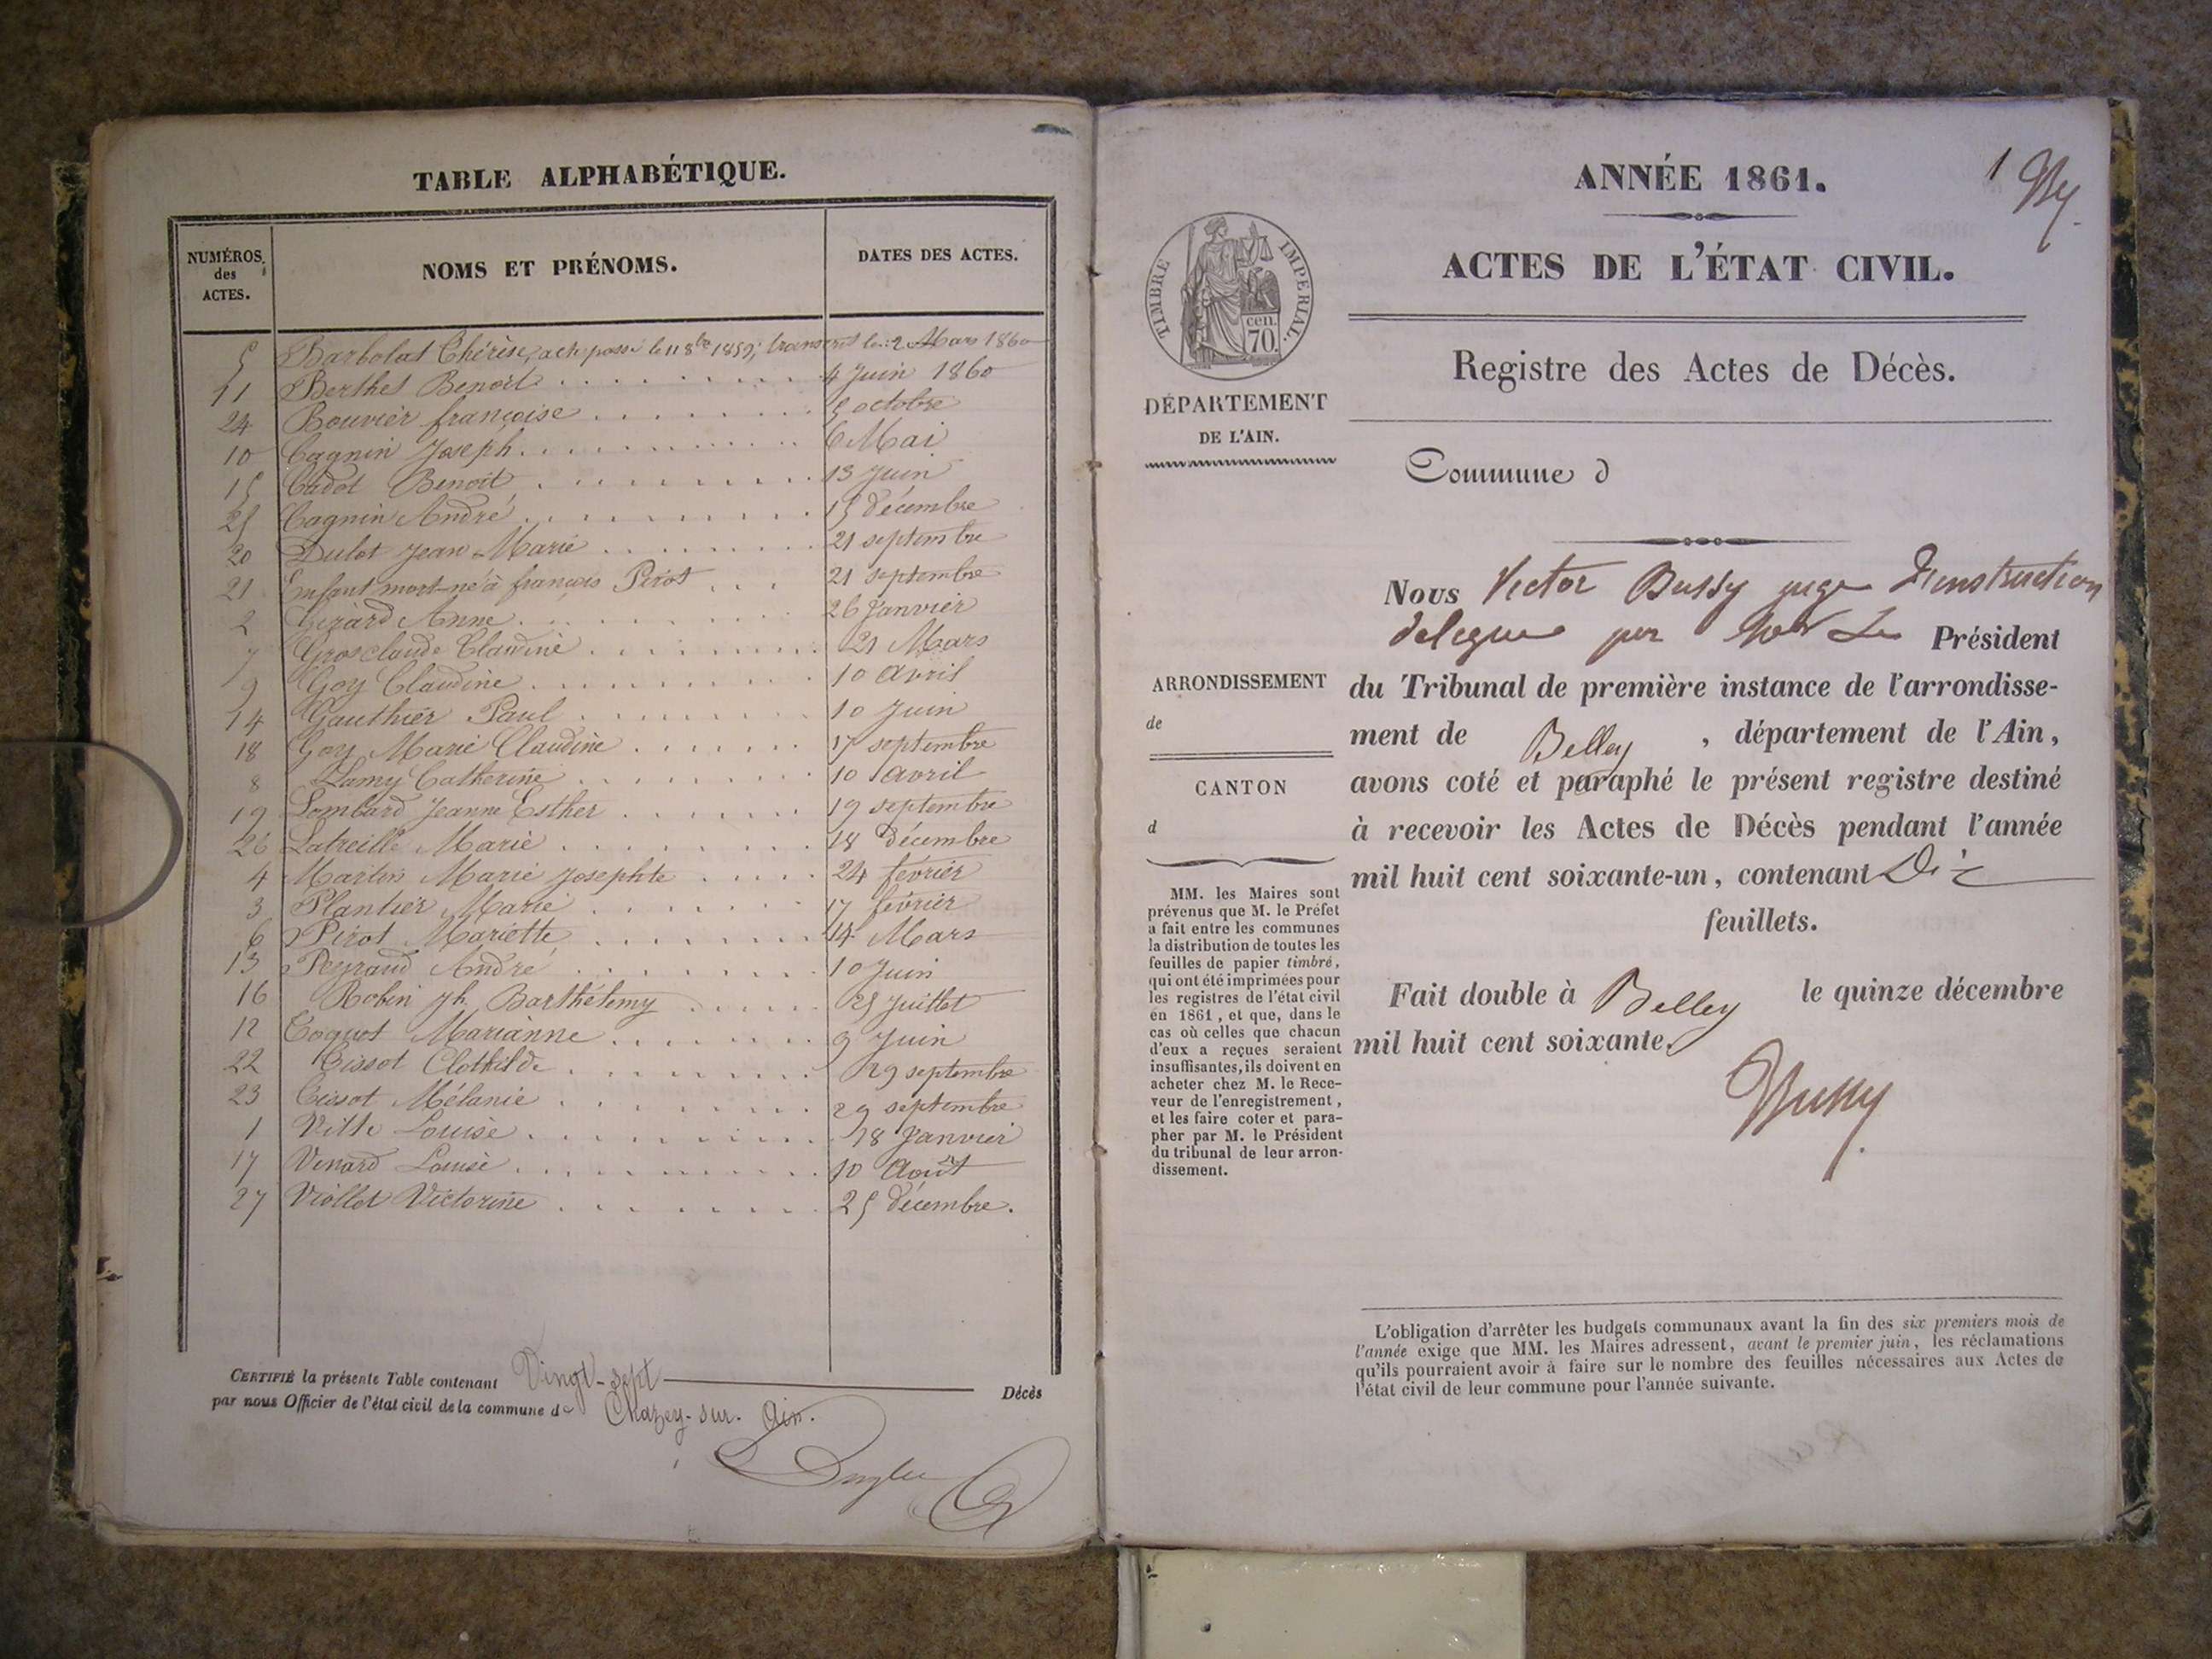 TABLE ALPHABÉTIQUE.
NUMÉROS des ACTES. NOMS ET PRÉNOMS. DATES DES ACTES.
5 Barbolat Thérèse, acte passé le 11 8bre 1859; transcrit le 2 Mars 1860
11 Berthet Benoit 4 Juin 1860
24 Bouvier françoise 5 octobre
10 Cagnin Joseph 6 Mai
15 Cadot Benoit 13 Juin
25 Cagnin André 15 décembre
20 Dulot Jean-Marie 21 septembre
21 Enfant mort-né à françois Pirot 21 septembre
2 Girard Anne 26 Janvier
7 Grosclaude Claudine 21 Mars
9 Goy Claudine 10 avril
14 Gauthier Paul 10 Juin
18 Goy Marie Claudine 17 septembre
8 Lamy Catherine 10 avril
19 Lombard Jeanne Esther 19 septembre
26 Latreille Marie 18 décembre
4 Martin Marie Josephte 24 février
3 Plantier Marie 17 février
6 Pirot Mariette 14 Mars
13 Peyraud André 10 Juin
16 Robin Jh Barthélemy 25 Juillet
12 Toquet Marianne 9 Juin
22 Tissot Clothilde 29 septembre
23 Tissot Mélanie 29 septembre
1 Ville Louise 18 Janvier
17 Venard Louise 10 Août
27 Viollet Victorine 25 décembre.
CERTIFIÉ la présente Table contenant Vingt-sept Décès
par nous Officier de l'état civil de la commune de Chazey-sur-Ain.
1
ANNÉE 1861.
ACTES DE L'ÉTAT CIVIL.
TIMBRE IMPERIAL.
cen.
70.
Registre des Actes de Décès.
DÉPARTEMENT
DE L'AIN.
Commune d
Nous Victor Bussy juge d'instruction
delegue par Mr Le Président
ARRONDISSEMENT
de
du Tribunal de première instance de l'arrondisse-
ment de Belley, département de l'Ain,
CANTON
d
avons coté et paraphé le présent registre destiné
à recevoir les Actes de Décès pendant l'année
mil huit cent soixante-un, contenant Dix
feuillets.
MM. les Maires sont
prévenus que M. le Préfet
a fait entre les communes
la distribution de toutes les
feuilles de papier timbré,
qui ont été imprimées pour
les registres de l'état civil
en 1861, et que, dans le
cas où celles que chacun
d'eux a reçues seraient
insuffisantes, ils doivent en
acheter chez M. le Rece-
veur de l'enregistrement,
et les faire coter et para-
pher par M. le Président
du tribunal de leur arron-
dissement.
Fait double à Belley le quinze décembre
mil huit cent soixante.
Bussy
L'obligation d'arrêter les budgets communaux avant la fin des six premiers mois de
l'année exige que MM. les Maires adressent, avant le premier juin, les réclamations
qu'ils pourraient avoir à faire sur le nombre des feuilles nécessaires aux Actes de
l'état civil de leur commune pour l'année suivante.